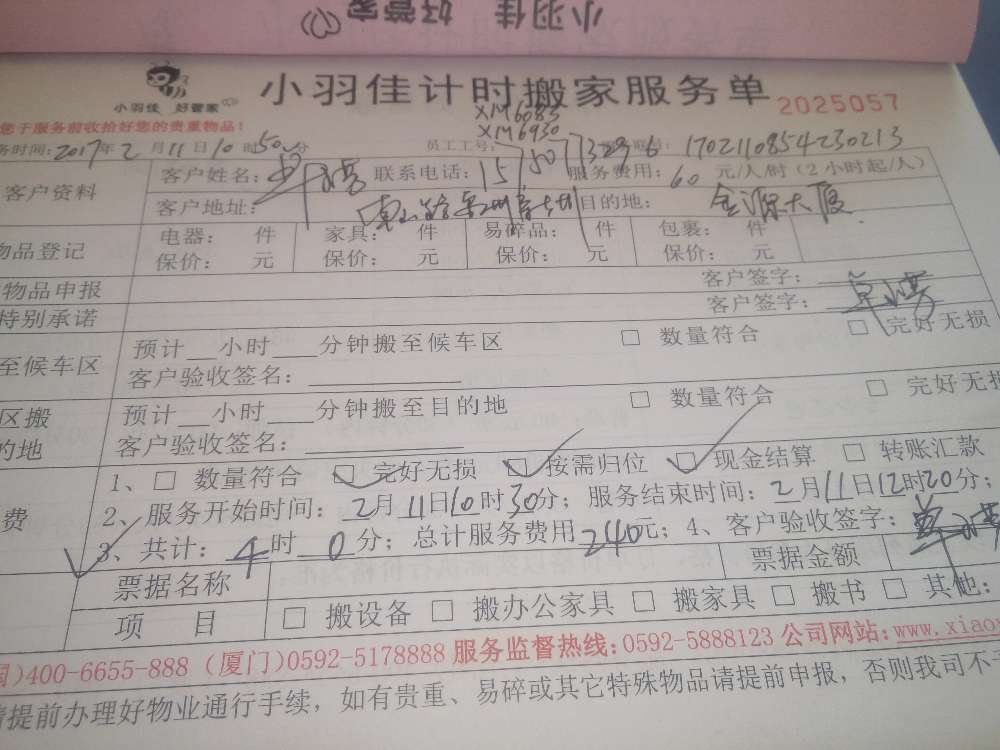 小羽佳 好管家
小羽佳 好管家
小羽佳计时搬家服务单 2025057
您于服务前收拾好您的贵重物品!
XM6083
XM6930
务时间: 2017年2月11日10时50分 员工工号: 1702110854230213
客户资料 客户姓名: 联系电话: 15 服务费用: 60 元/人/时(2小时起/人)
客户地址: 目的地: 金源大厦
物品登记 电器: 件 家具: 件 易碎品: 件 包裹: 件
保价: 元 保价: 元 保价: 元 保价: 元
物品申报 客户签字:
特别承诺 客户签字:
至候车区 预计__小时___分钟搬至候车区 □ 数量符合 □ 完好无损
客户验收签名:
区搬 预计__小时___分钟搬至目的地 □ 数量符合 □ 完好无损
的地 客户验收签名:
1、□ 数量符合 ☑ 完好无损 ☑ 按需归位 ☑ 现金结算 □ 转账汇款
费 2、服务开始时间: 2月11日10时30分; 服务结束时间: 2月11日12时20分;
3、共计: 4时0分; 总计服务费用240元; 4、客户验收签字:
票据名称 票据金额
项 目 □ 搬设备 □ 搬办公家具 □ 搬家具 □ 搬书 □ 其他:
)400-6655-888 (厦门)0592-5178888 服务监督热线:0592-5888123 公司网站:www.xiao
请提前办理好物业通行手续, 如有贵重、易碎或其它特殊物品请提前申报, 否则我司不